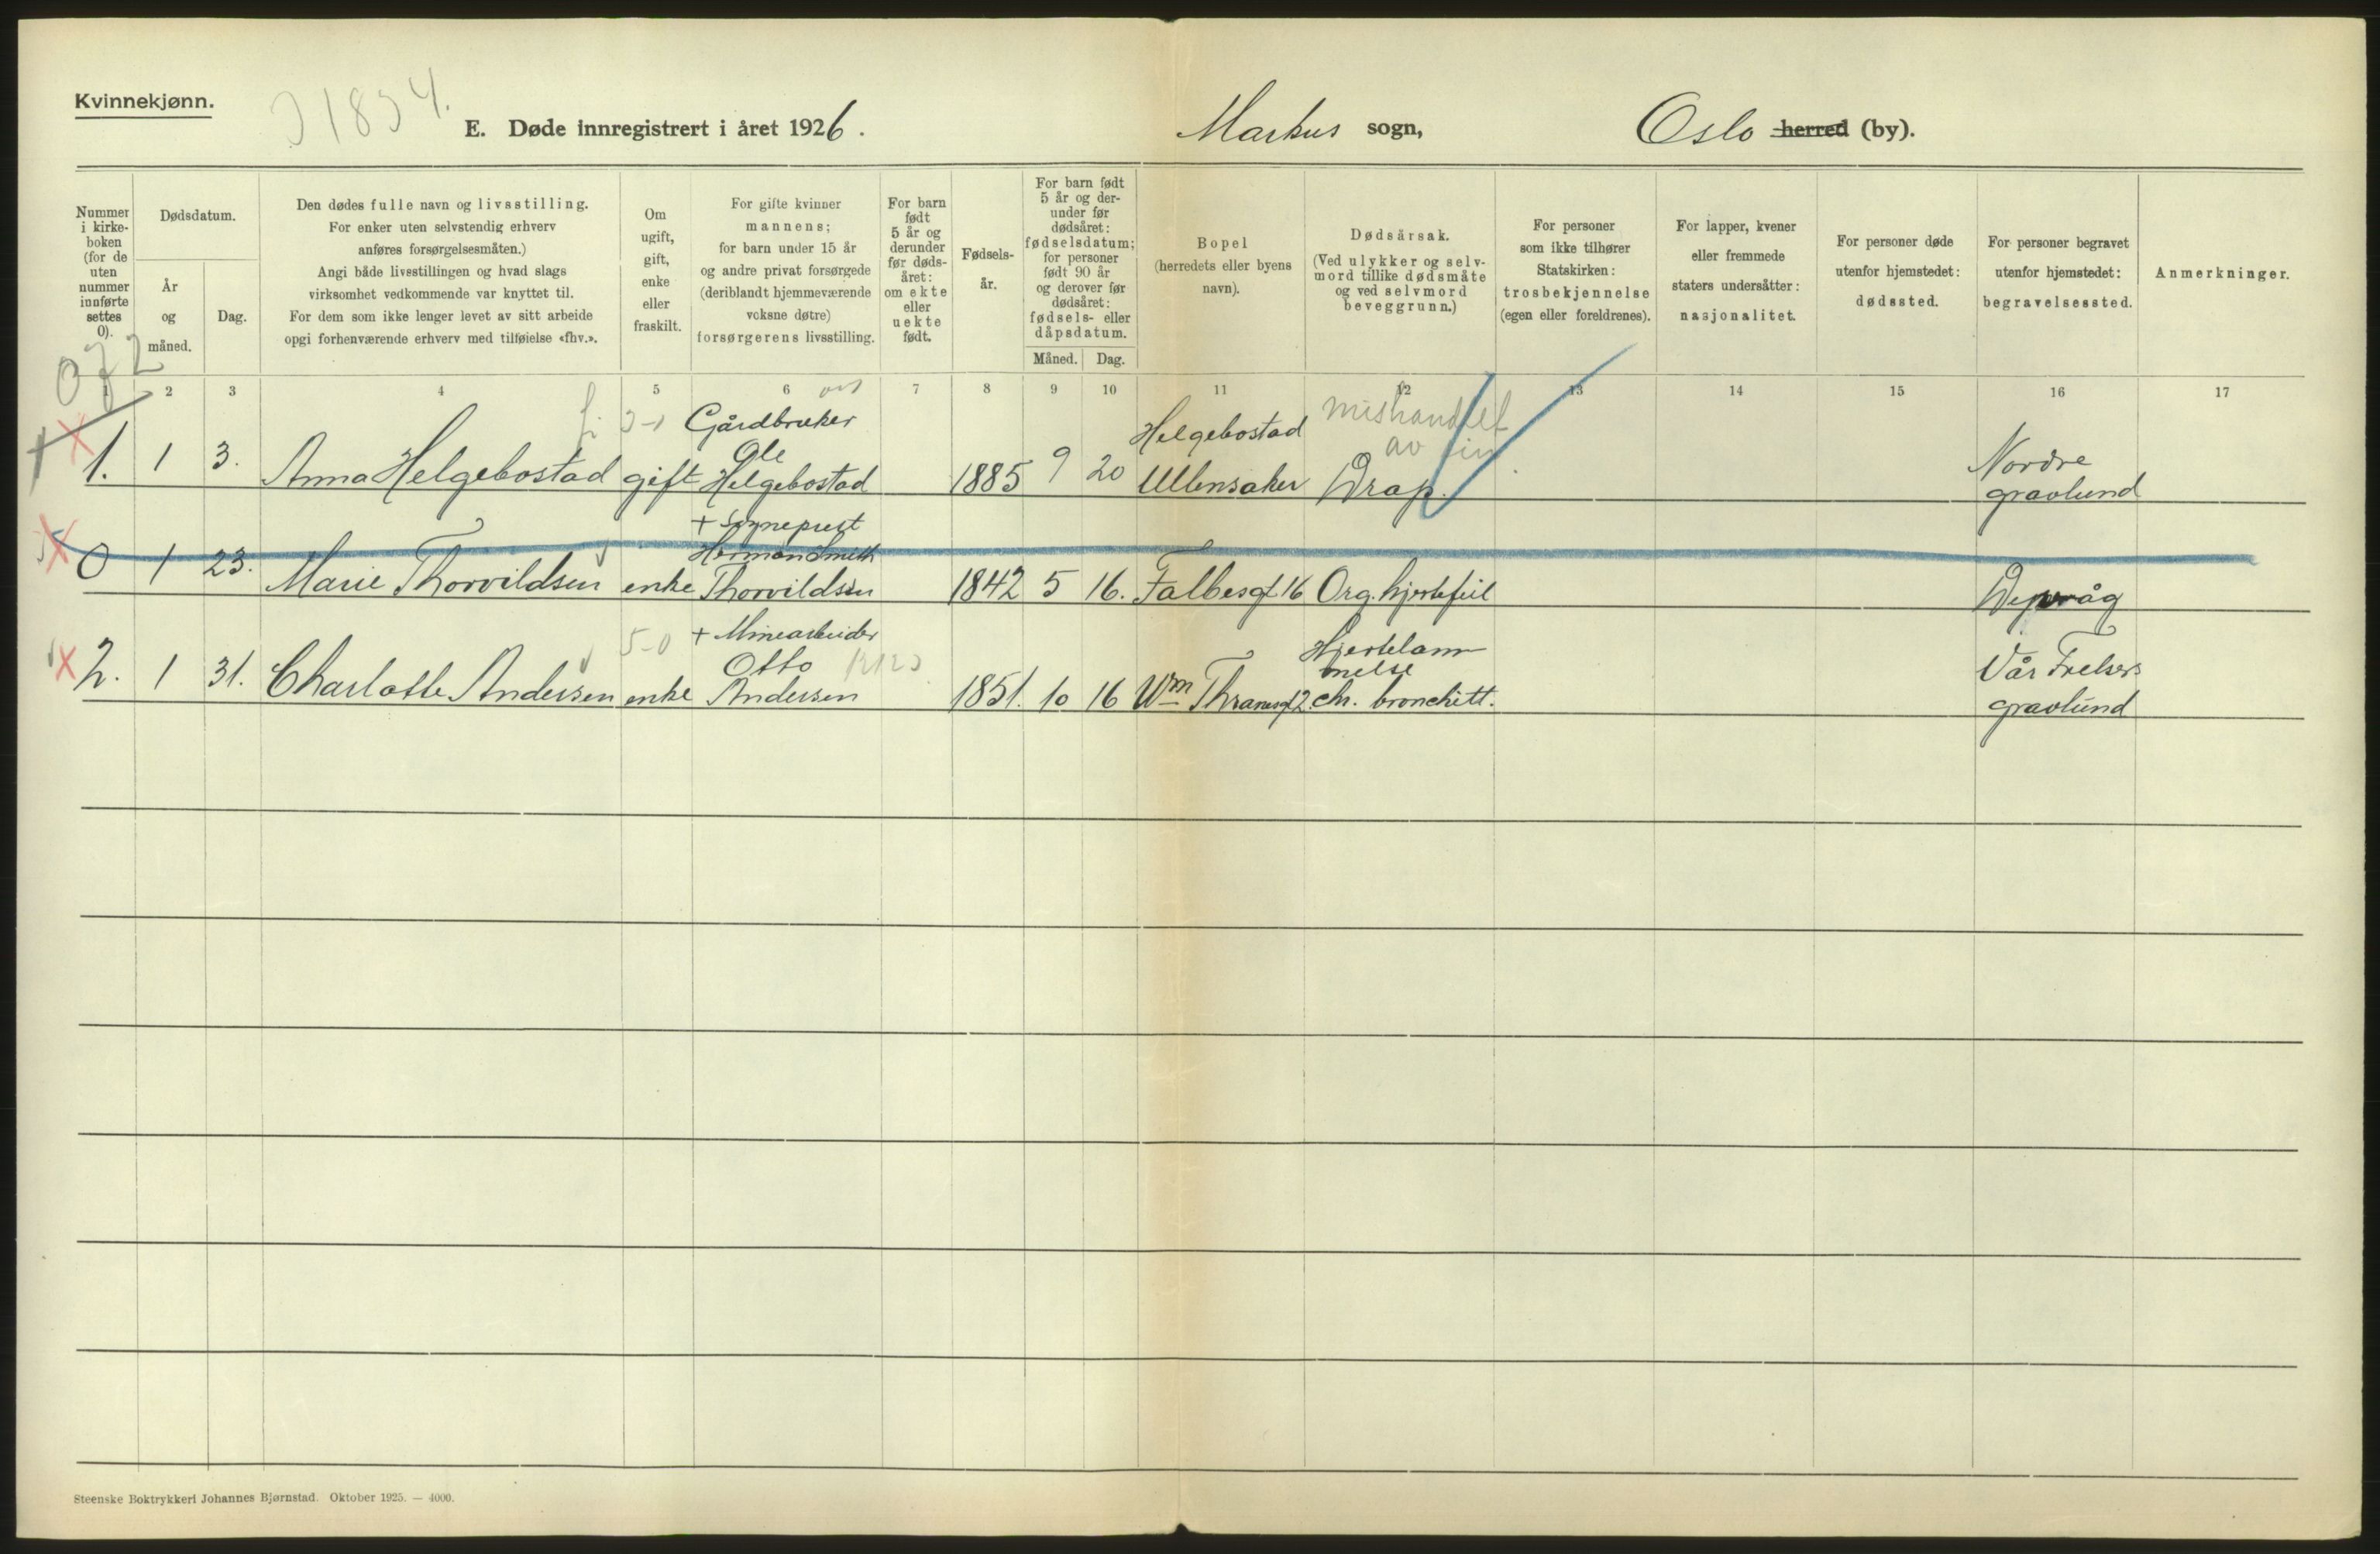 Kvinnekjønn.
E. Døde innregistrert i året 1926.
Markus sogn,
Oslo herred (by).
Nummer
i kirke-
boken
(for de
uten
nummer
innførte
settes
0).
Dødsdatum.
År
og
måned.
Dag.
Den dødes fulle navn og livsstilling.
For enker uten selvstendig erhverv
anføres forsørgelsesmåten.)
Angi både livsstillingen og hvad slags
virksomhet vedkommende var knyttet til.
For dem som ikke lenger levet av sitt arbeide
opgi forhenværende erhverv med tilføielse «fhv.».
Om
ugift,
gift,
enke
eller
fraskilt.
For gifte kvinner
mannens;
for barn under 15 år
og andre privat forsørgede
(deriblandt hjemmeværende
voksne døtre)
forsørgerens livsstilling.
For barn
født
5 år og
derunder
før døds-
året:
om ekte
eller
uekte
født.
Fødsels-
år.
For barn født
5 år og der-
under før
dødsåret:
fødselsdatum;
for personer
født 90 år
og derover før
dødsåret:
fødsels- eller
dåpsdatum.
Måned. Dag.
Bopel
(herredets eller byens
navn).
Dødsårsak.
(Ved ulykker og selv-
mord tillike dødsmåte
og ved selvmord
beveggrunn.)
For personer
som ikke tilhører
Statskirken:
trosbekjennelse
(egen eller foreldrenes).
For lapper, kvener
eller fremmede
staters undersåtter:
nasjonalitet.
For personer døde
utenfor hjemstedet:
dødssted.
For personer begravet
utenfor hjemstedet:
begravelsessted.
Anmerkninger.
1 2 3 4 5 6 7 8 9 10 11 12 13 14 15 16 17
Gårdbruker
Helgebostad
mishandlet
Ole
av sin
Nordre
1. 1 3. Anna Helgebostad gift Helgebostad 1885 9 20 Ullensaker Drap. gravlund
+ Sogneprest
Herman Smith
0 1 23. Marie Thorvildsen enke Thorvildsen 1842 5 16. Falbesgt 16 Org. hjertefeil
5-0 + Minearbeider
Hjertelam-
Otto
melse
Vår Frelsers
2. 1 31. Charlotte Andersen enke Andersen 1851. 10 16 Wm Thranesgt 2 chr. bronchitt. gravlund
Steenske Boktrykkeri Johannes Bjørnstad. Oktober 1925. — 4000.